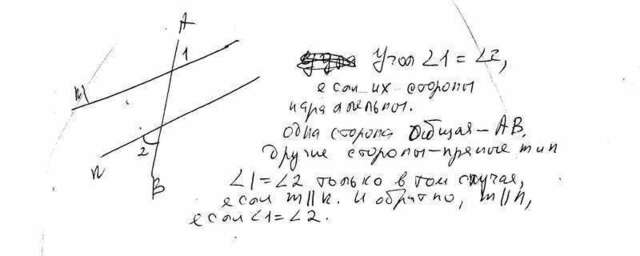 A
1
m
2
n
B
Угол ∠1 = ∠2,
если их стороны
паралельны.
одна сторона общая – AB.
другие стороны – прямые m и n
∠1 = ∠2 только в том случая,
если m || n. И обратно, m || n,
если ∠1 = ∠2.